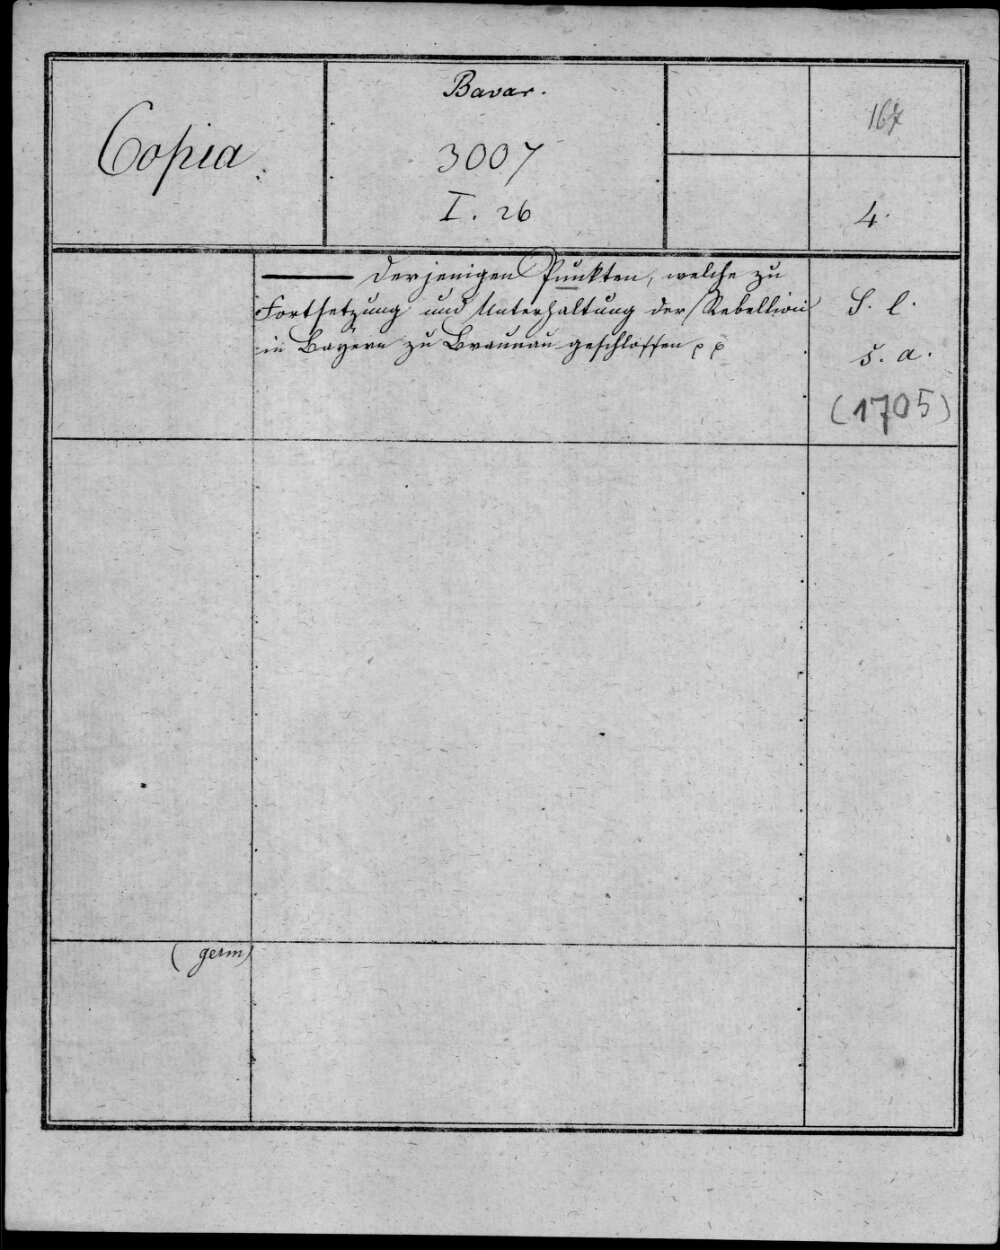 Copia.
Bavar.
3007
I. 26
167
4.
derjenigen Punkten, welche zu
Fortsetzung und Unterhaltung der Rebellion
in Bayern zu Braunau geschlossen pp
S. l.
s. a.
(1705)
(germ)